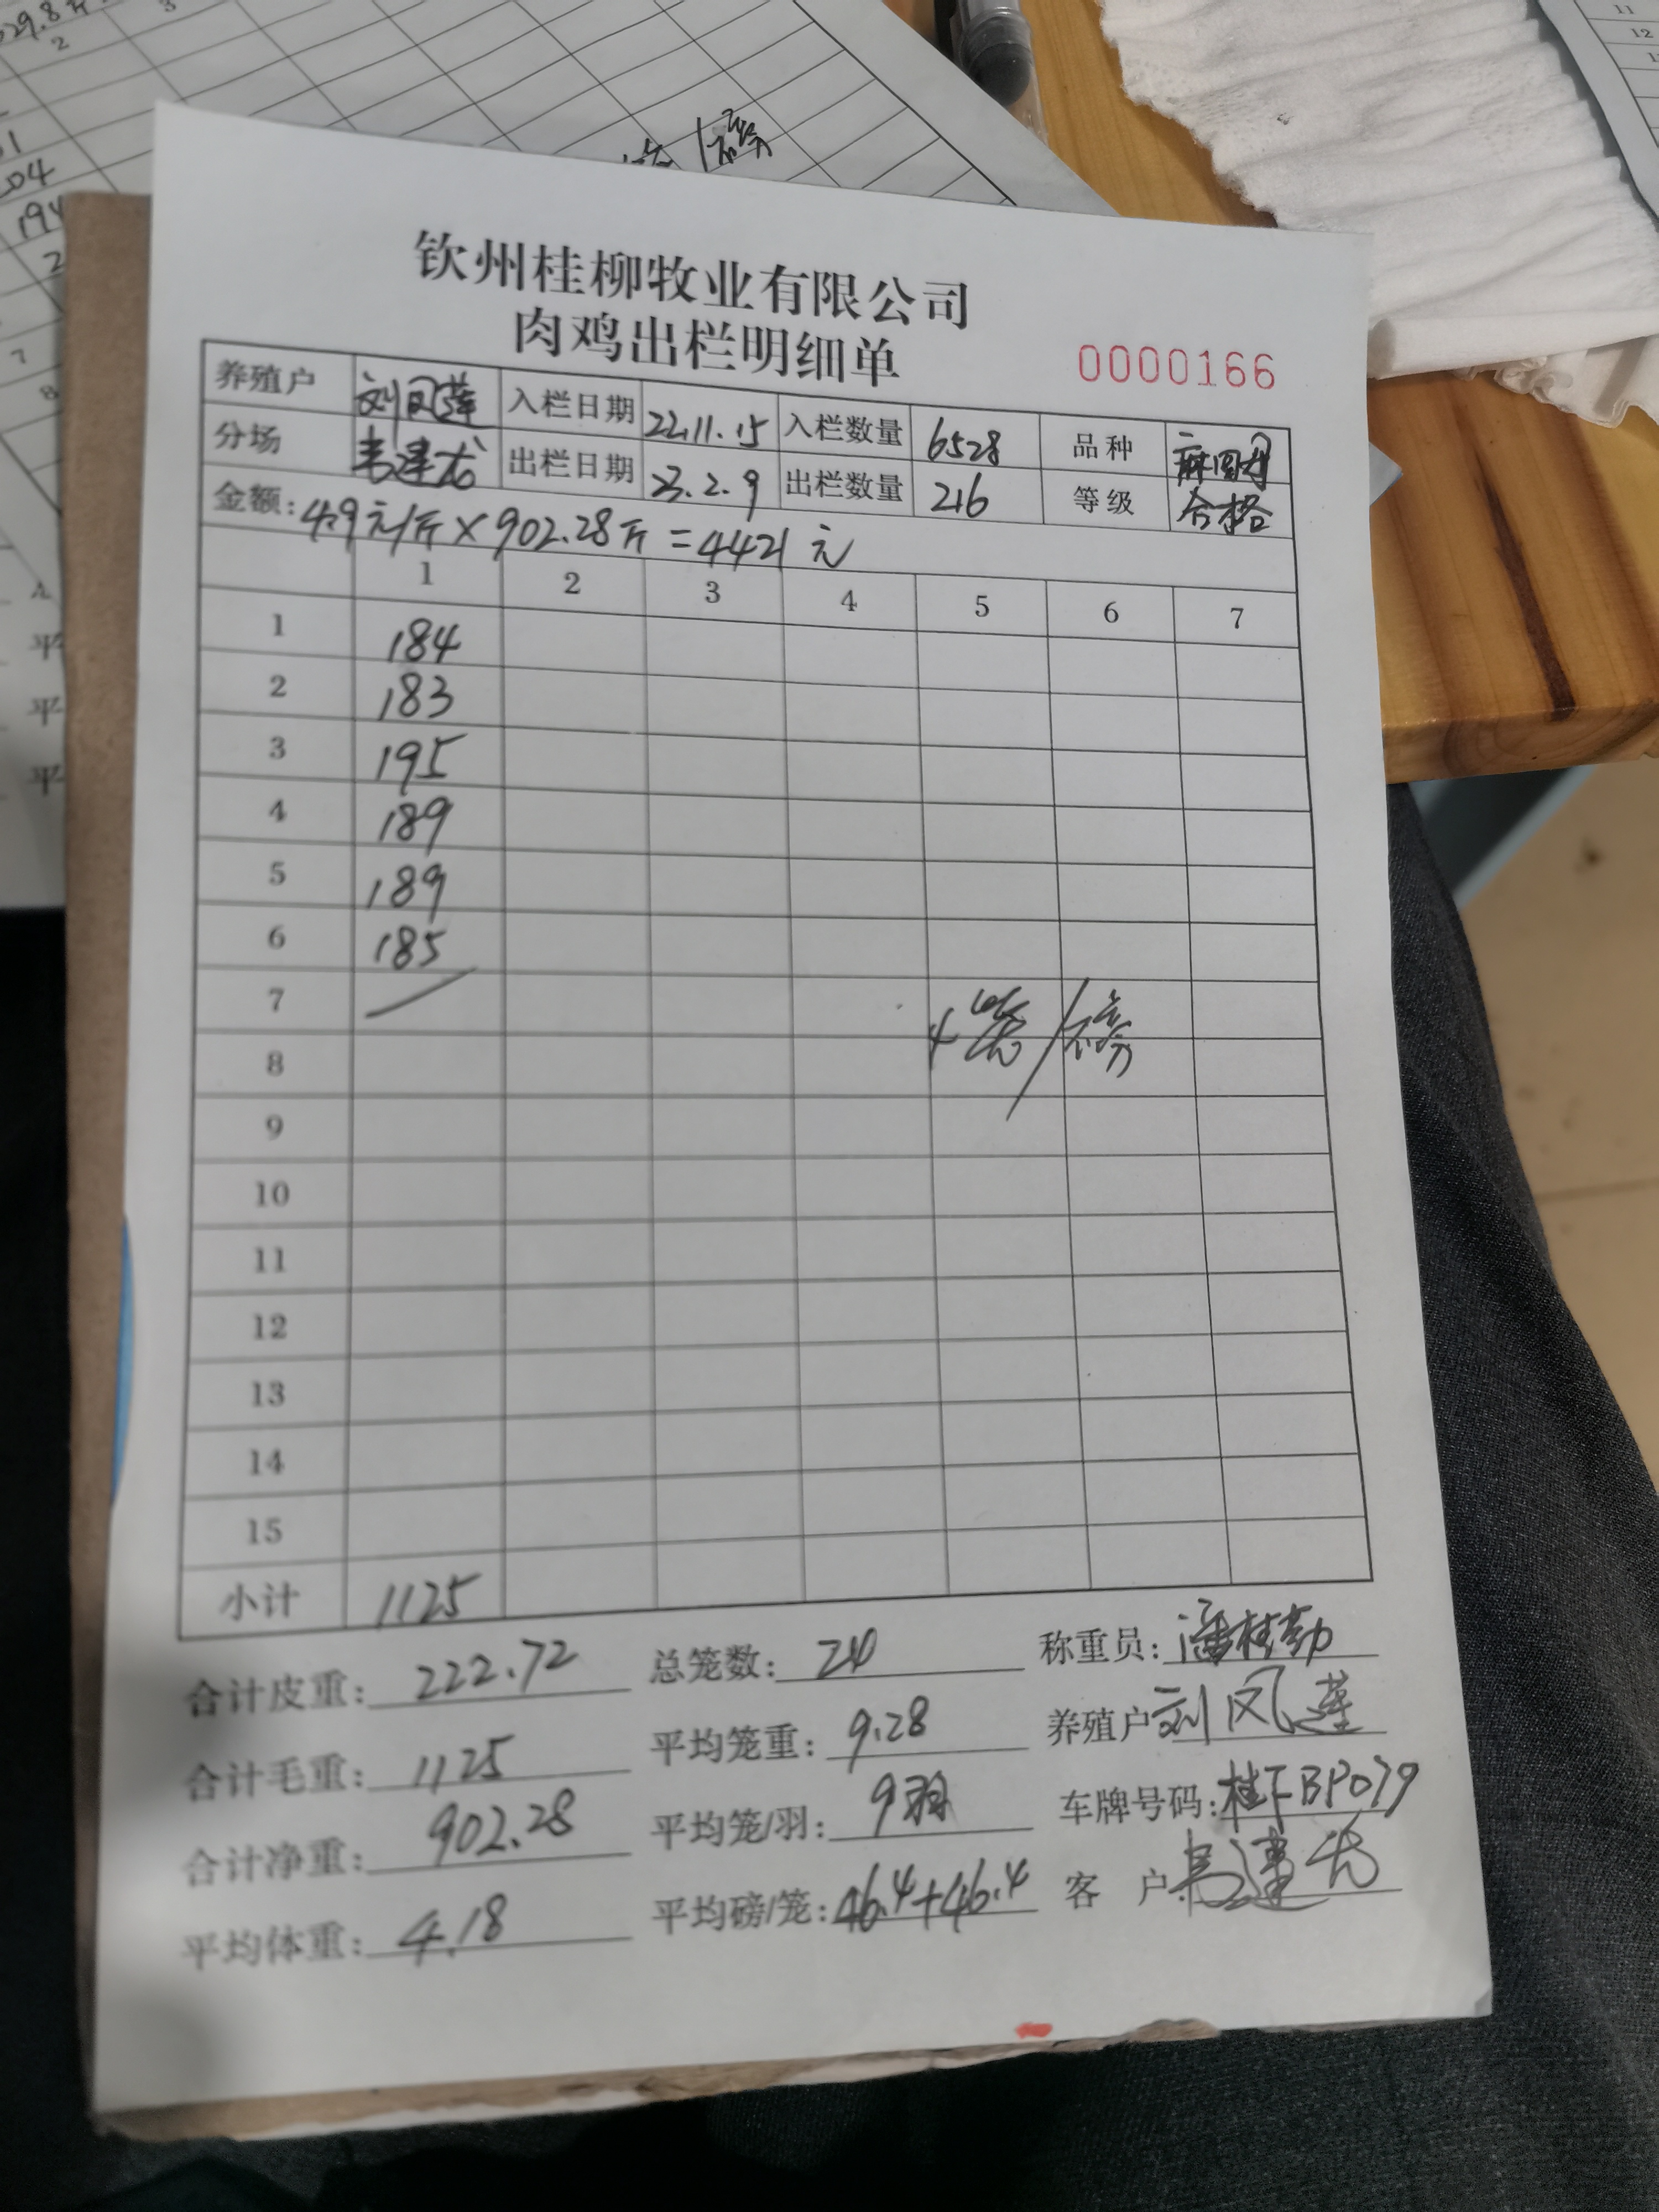 钦州桂柳牧业有限公司
肉鸡出栏明细单
0000166
养殖户 刘凤莲 入栏日期 22.11.15 入栏数量 6528 品种
分场 出栏日期 23.2.9 出栏数量 216 等级 合格
金额: 4.9元/斤×902.28斤=4421元
1 2 3 4 5 6 7
1 184
2 183
3 195
4 189
5 189
6 185
7
4笼/磅
8
9
10
11
12
13
14
15
小计 1125
合计皮重: 222.72 总笼数: 24 称重员: 潘桂勤
合计毛重: 1125 平均笼重: 9.28 养殖户 刘凤莲
合计净重: 902.28 平均笼/羽: 9羽 车牌号码:
平均体重: 4.18 平均磅/笼: 46.4+46.4 客 户